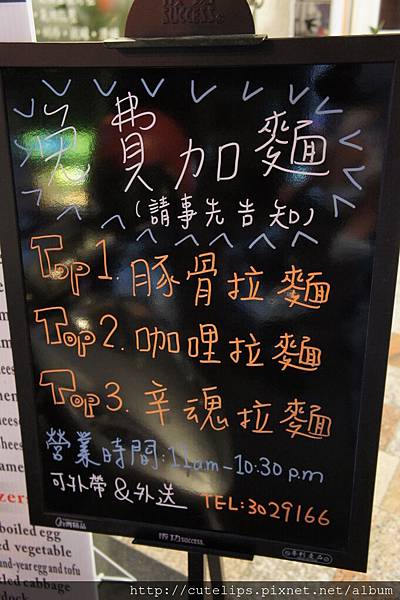 SUCCESS
免費加麵
(請事先告知)
Top 1. 豚骨拉麵
Top 2. 咖哩拉麵
Top 3. 辛魂拉麵
營業時間:11am-10:30 p.m
可外帶&外送 TEL:3029166
成功 success.
專利產品
boiled egg
vegetable
and-year egg and tofu
cabbage
http://cutelips.pixnet.net/album